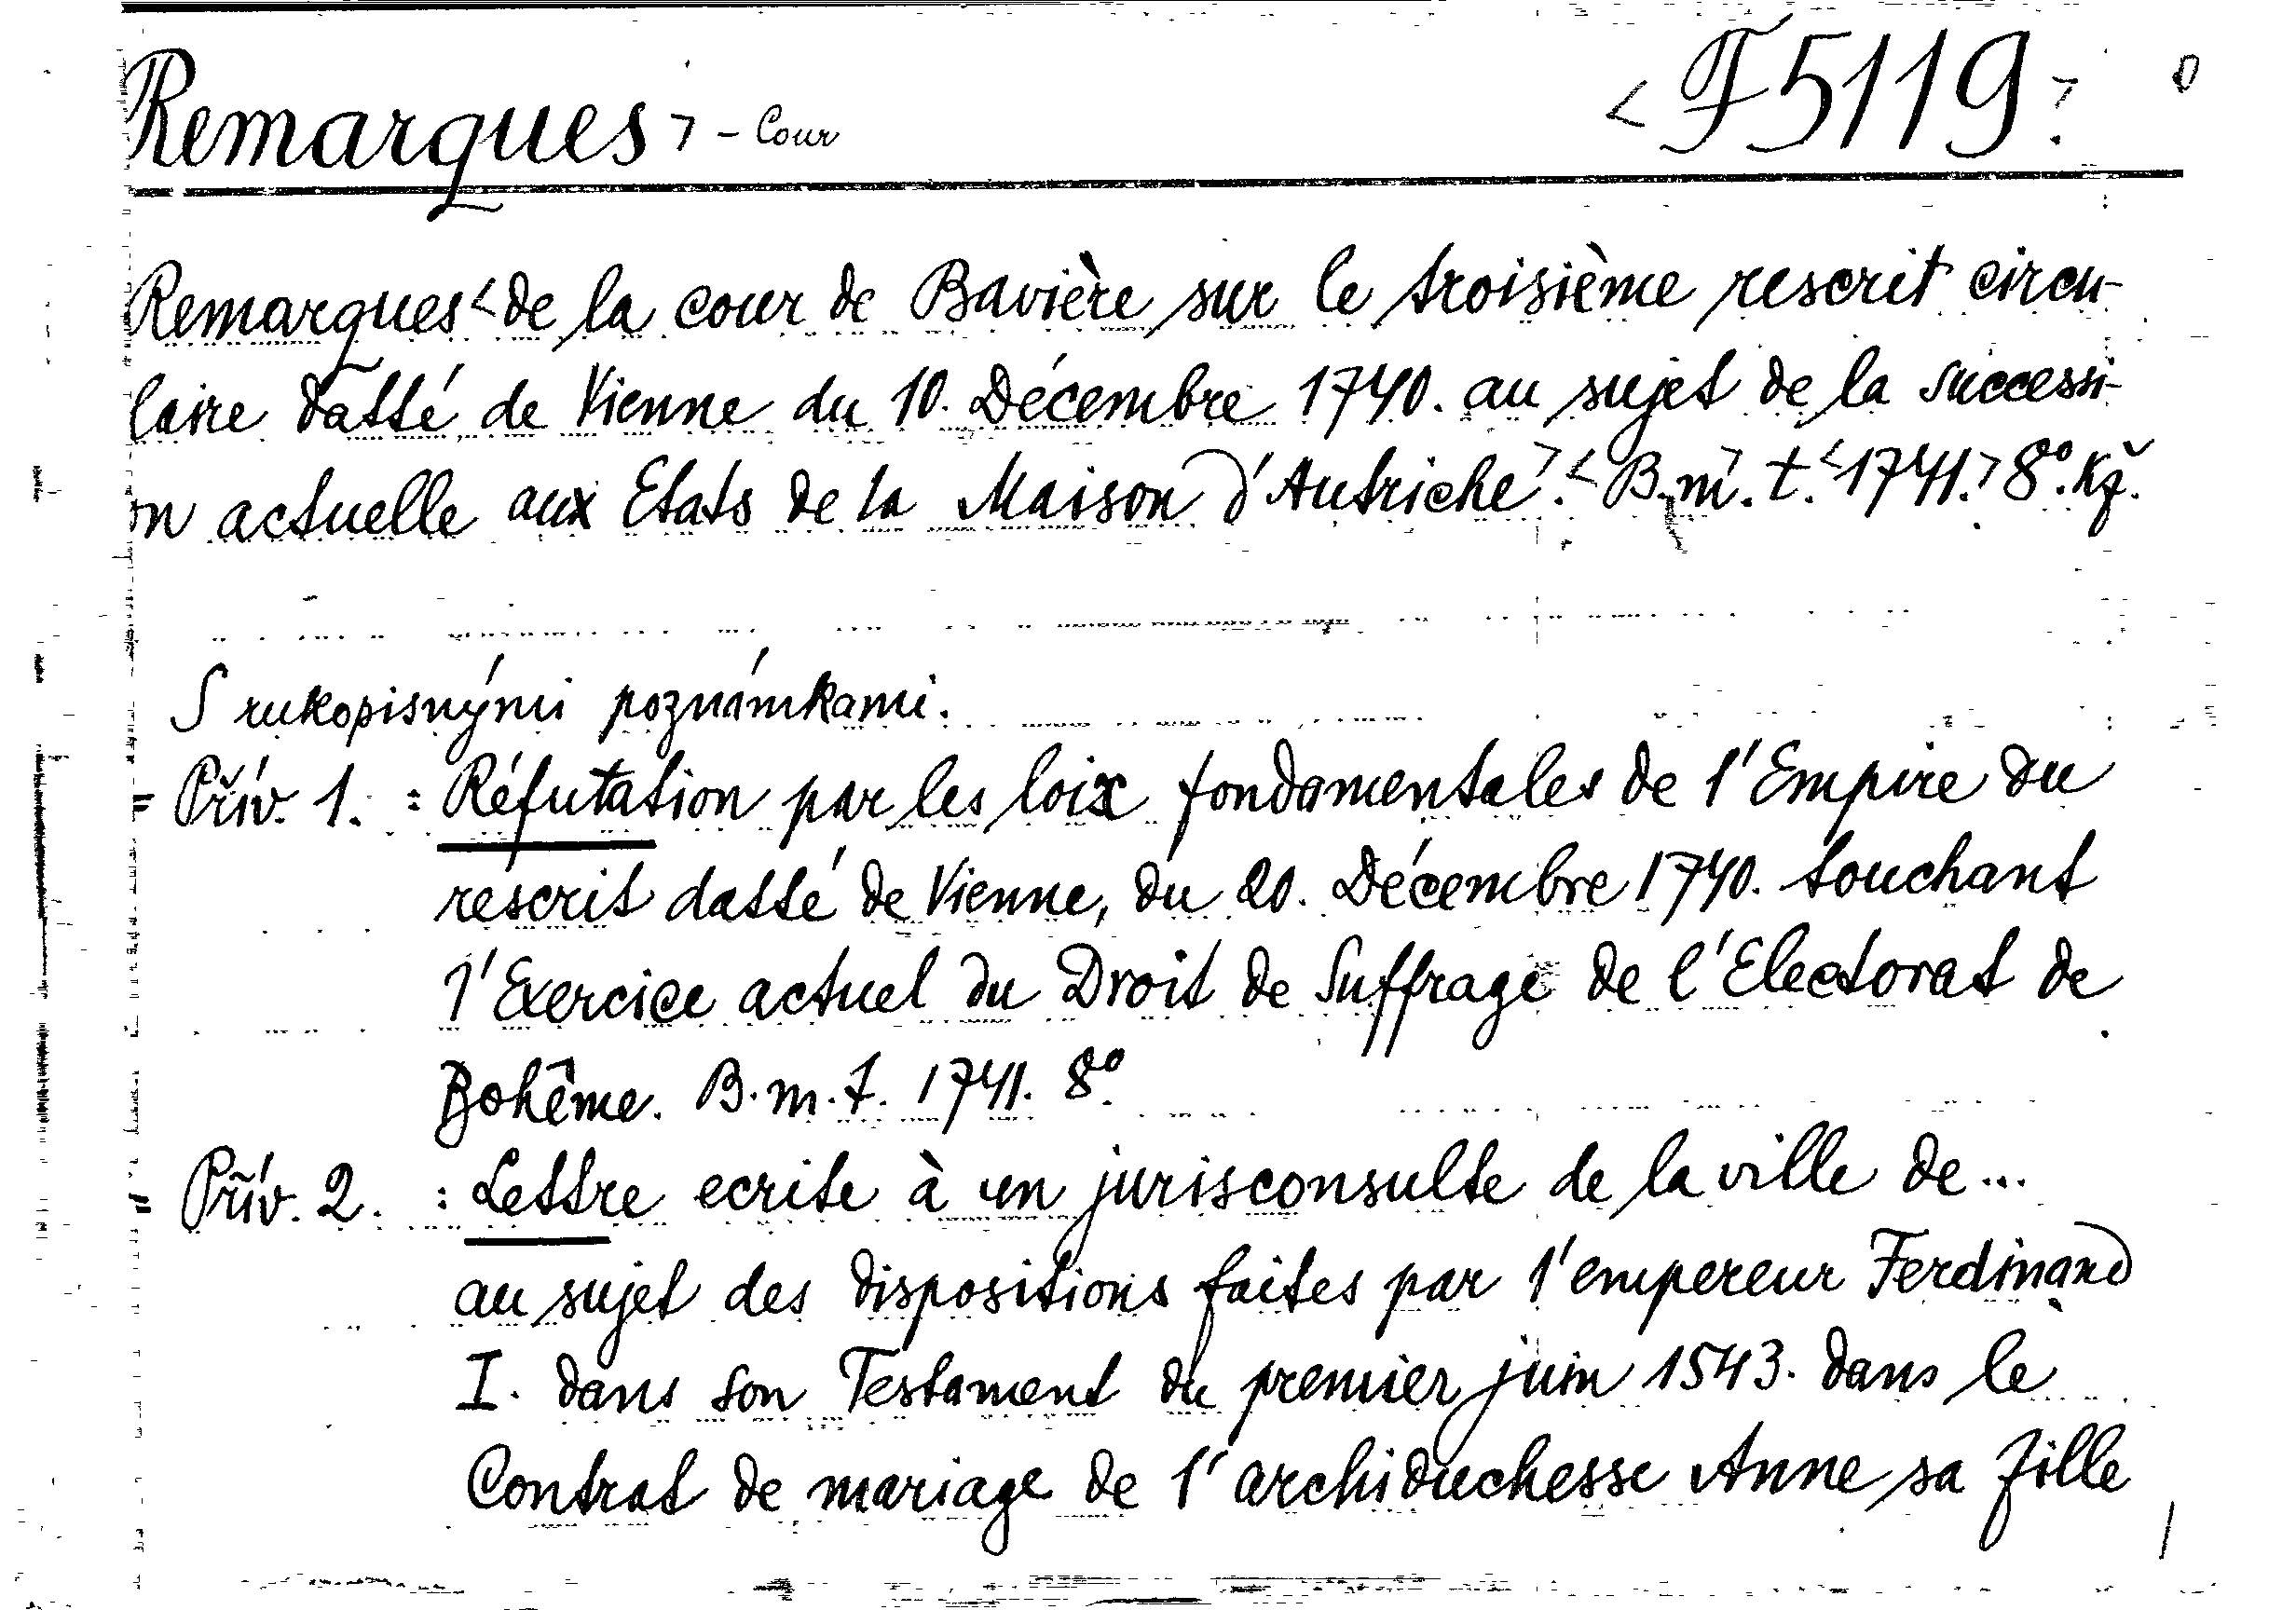 Remarques > - Cour < F 5119 >
Remarques < de la cour de Bavière sur le troisième rescrit circu-
laire datté de Vienne du 10. Décembre 1740. au sujet de la successi-
on actuelle aux Etats de la Maison d'Autriche >. < B. m. t. < 1741. > 8°. Kž.
S rukopisnými poznámkami.
= Přív. 1. : Réfutation par les loix fondamentales de l'Empire du
rescrit datté de Vienne, du 20. Décembre 1740. touchant
l'Exercice actuel du Droit de Suffrage de l'Electorat de
Bohême. B. m. t. 1741. 8°.
= Přív. 2. : Lettre ecrite à un jurisconsulte de la ville de ...
au sujet des dispositions faites par l'empereur Ferdinand
I. dans son Testament du premier juin 1543. dans le
Contrat de mariage de l'archiduchesse Anne sa fille